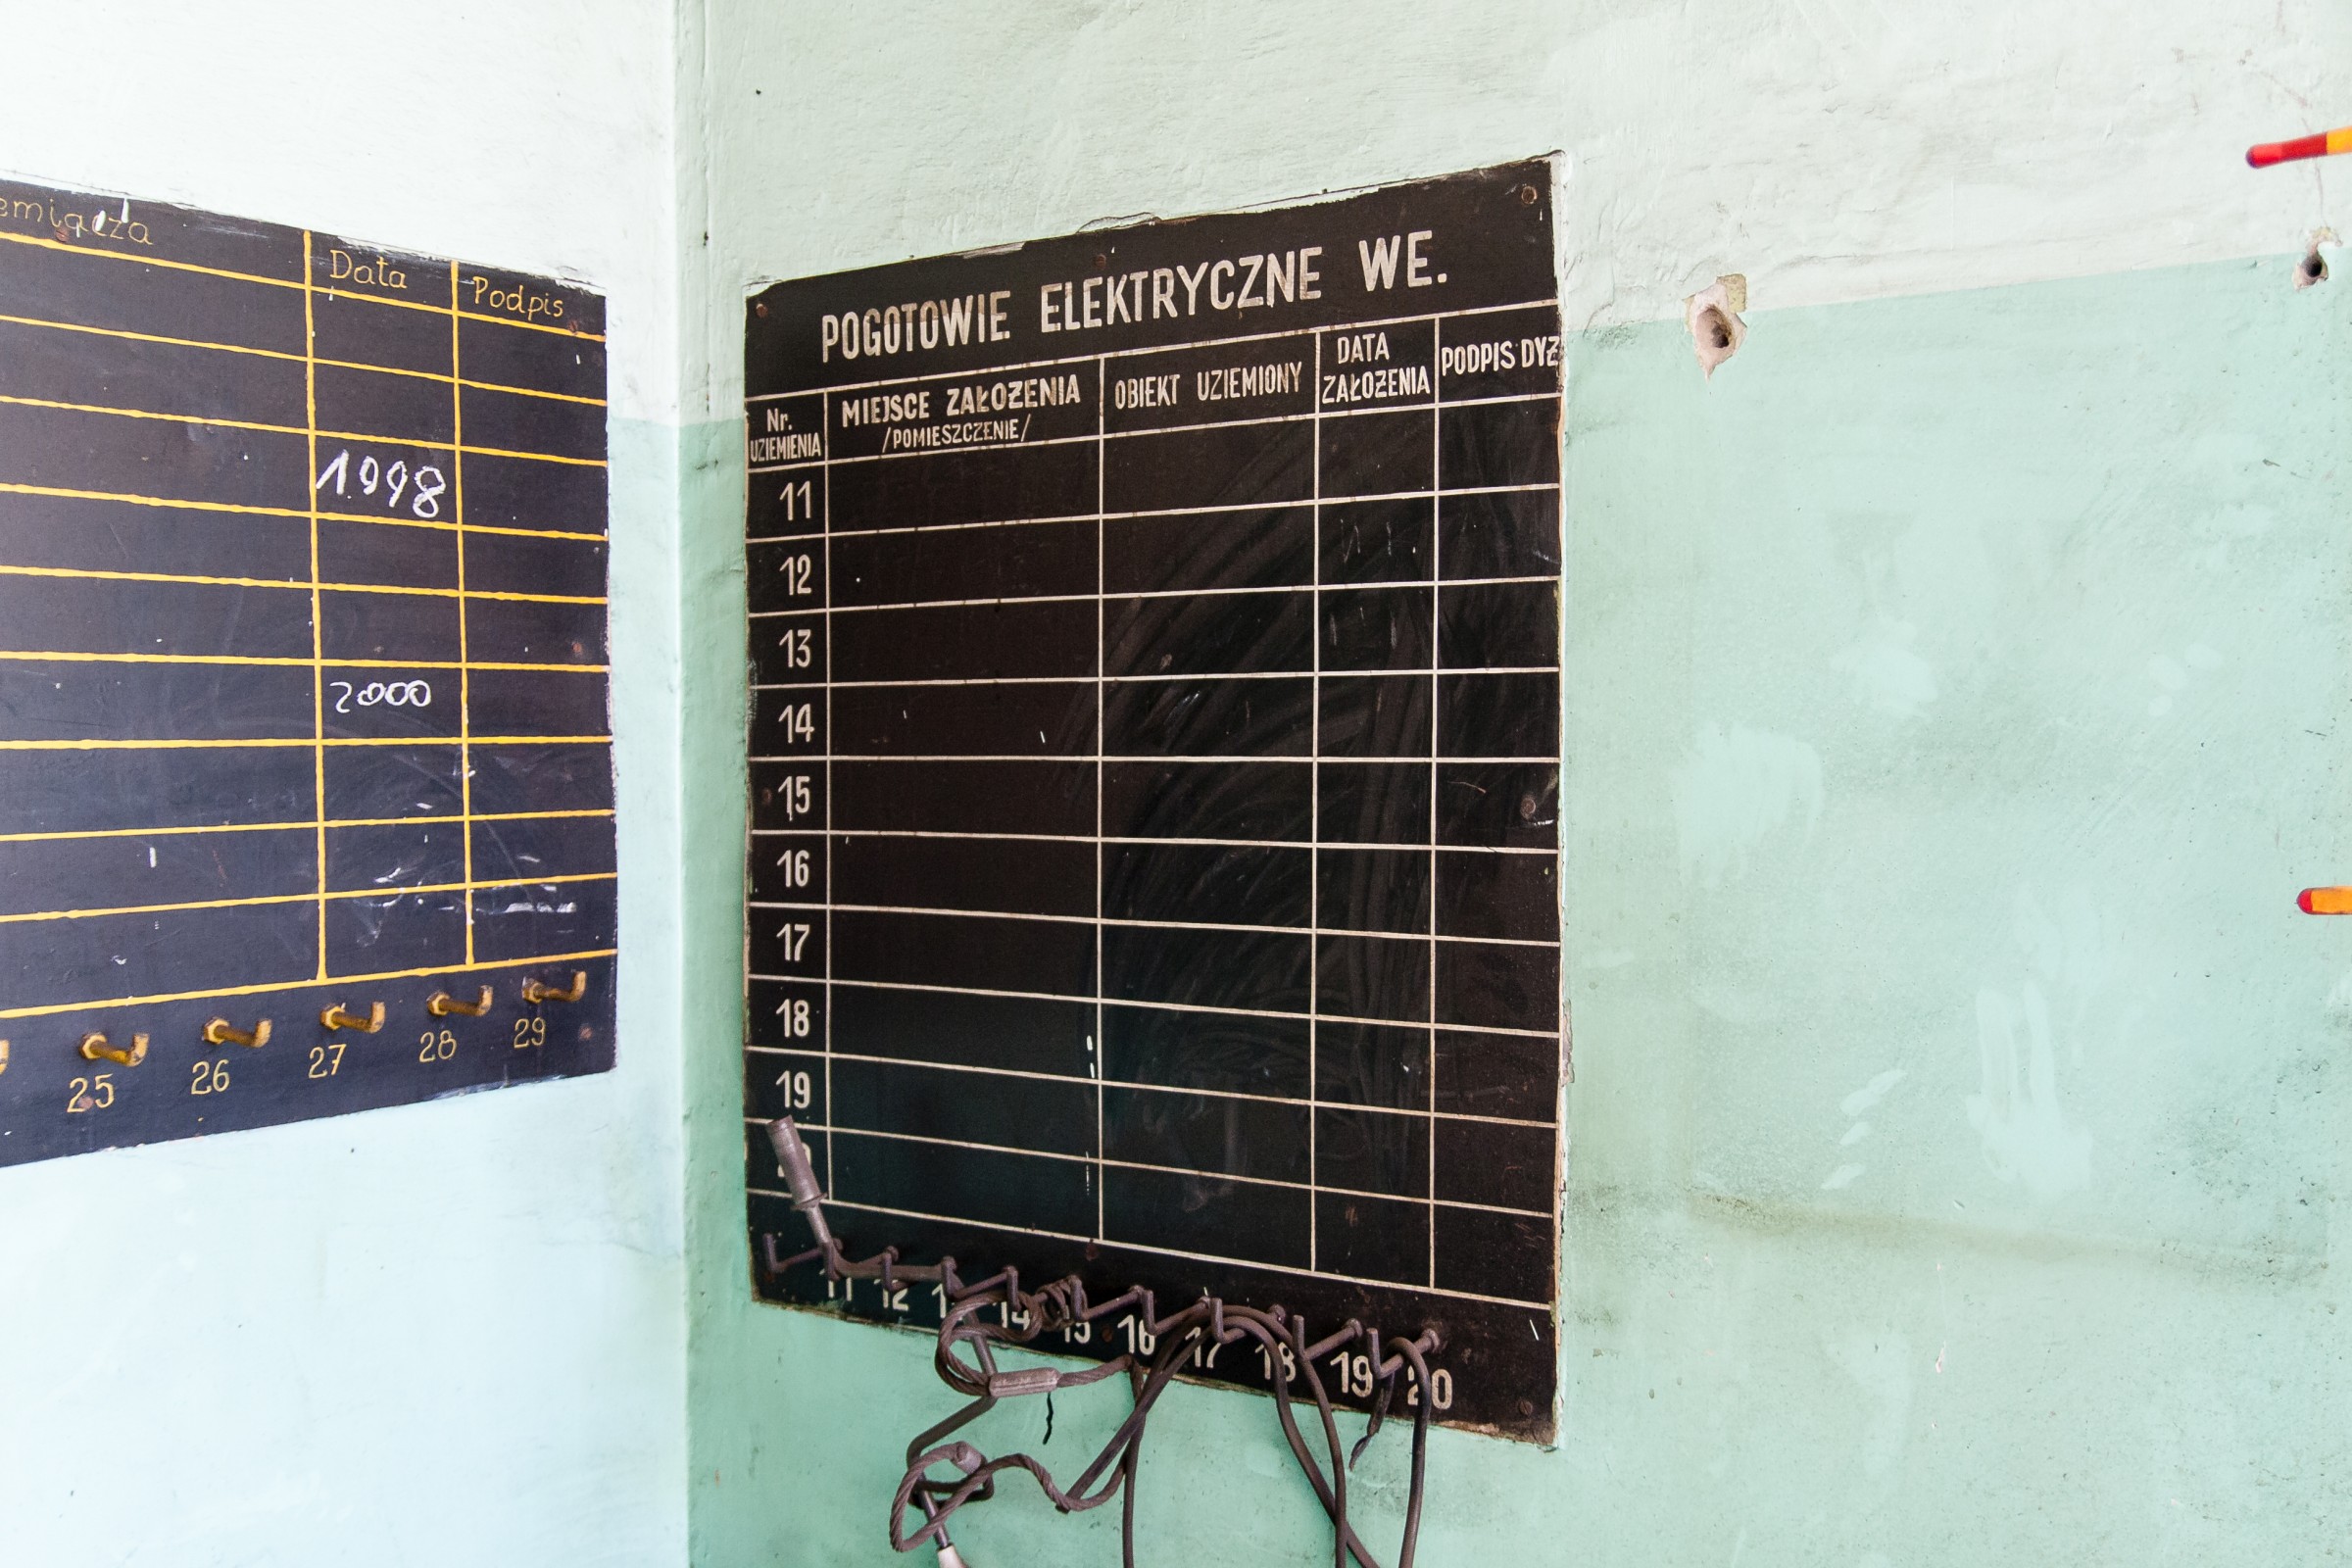 Data
Podpis
1998
2000
25 26 27 28 29
POGOTOWIE ELEKTRYCZNE WE.
Nr.
UZIEMIENIA
MIEJSCE ZAŁOŻENIA
/POMIESZCZENIE/
OBIEKT UZIEMIONY
DATA
ZAŁOŻENIA
PODPIS DYŻ
11
12
13
14
15
16
17
18
19
11 12 14 15 16 17 18 19 20